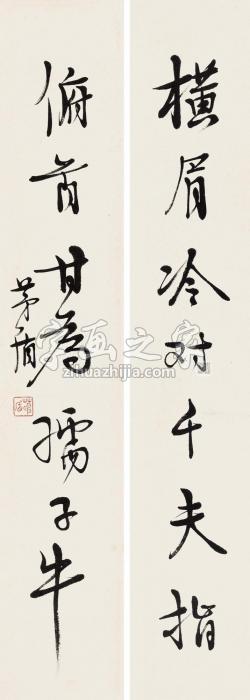 横眉冷对千夫指
俯首甘為孺子牛
茅盾
字画之家
zihuazhijia.com